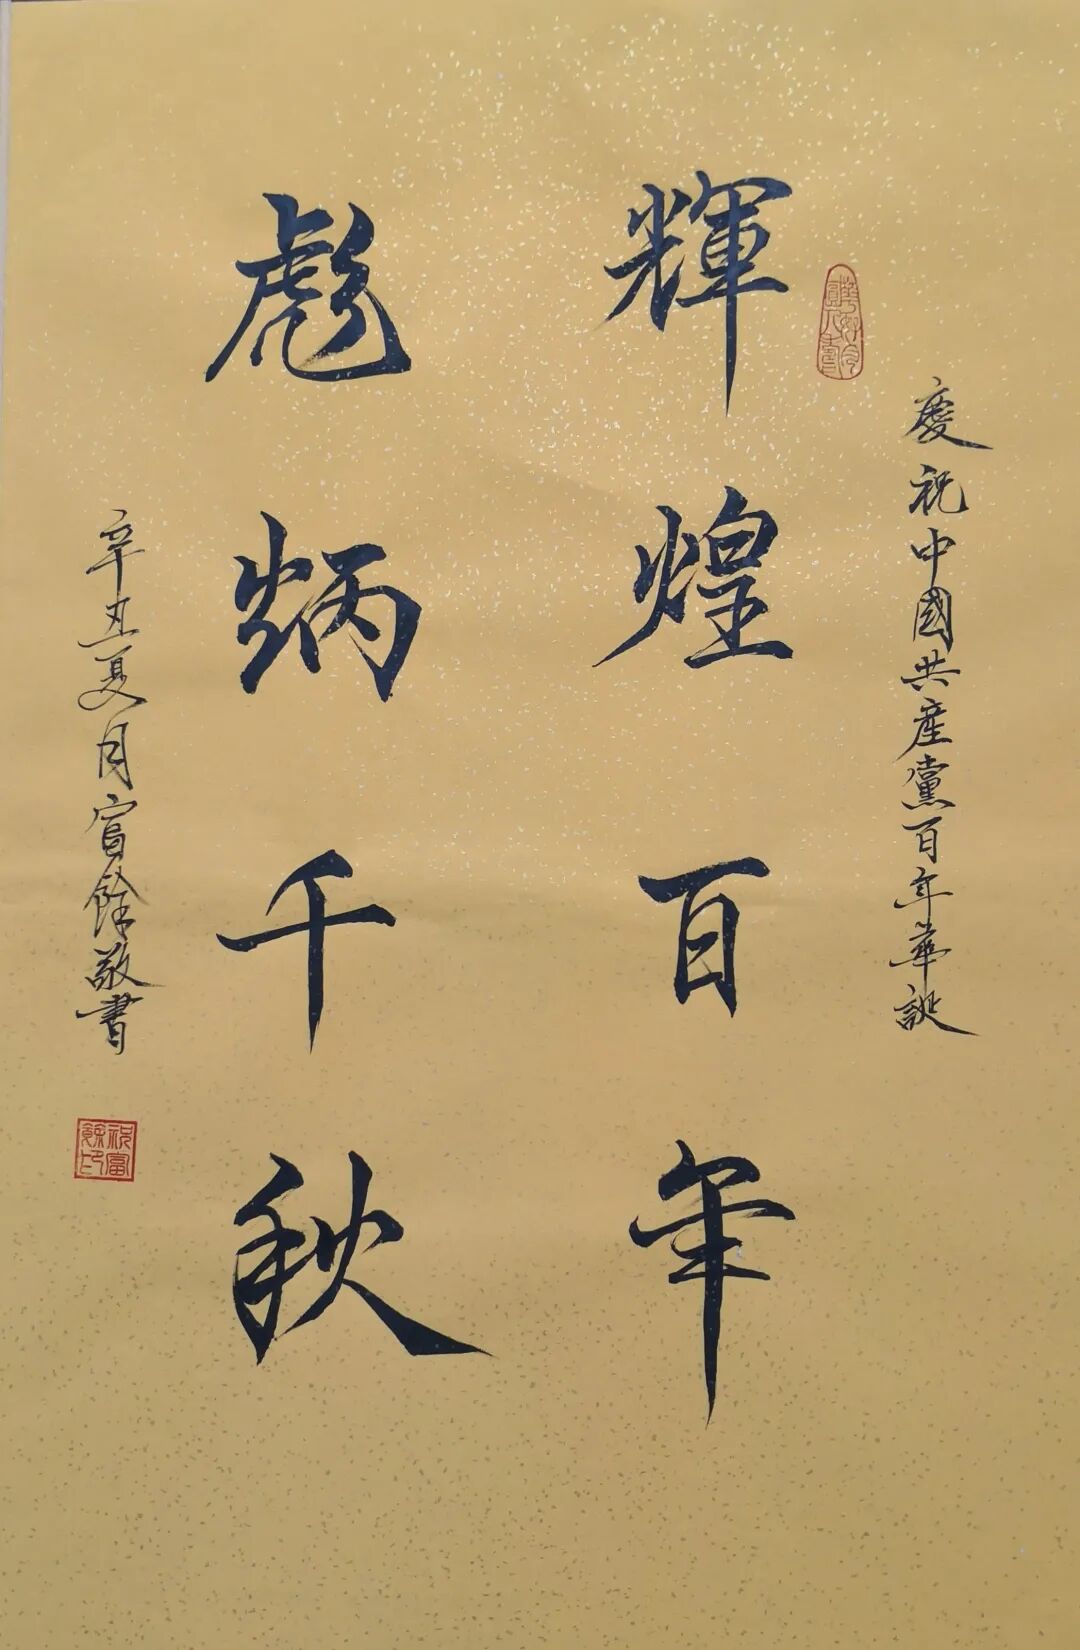 慶祝中國共產黨百年華誕
輝煌百年
彪炳千秋
辛丑夏月富餘敬書
祝富餘印